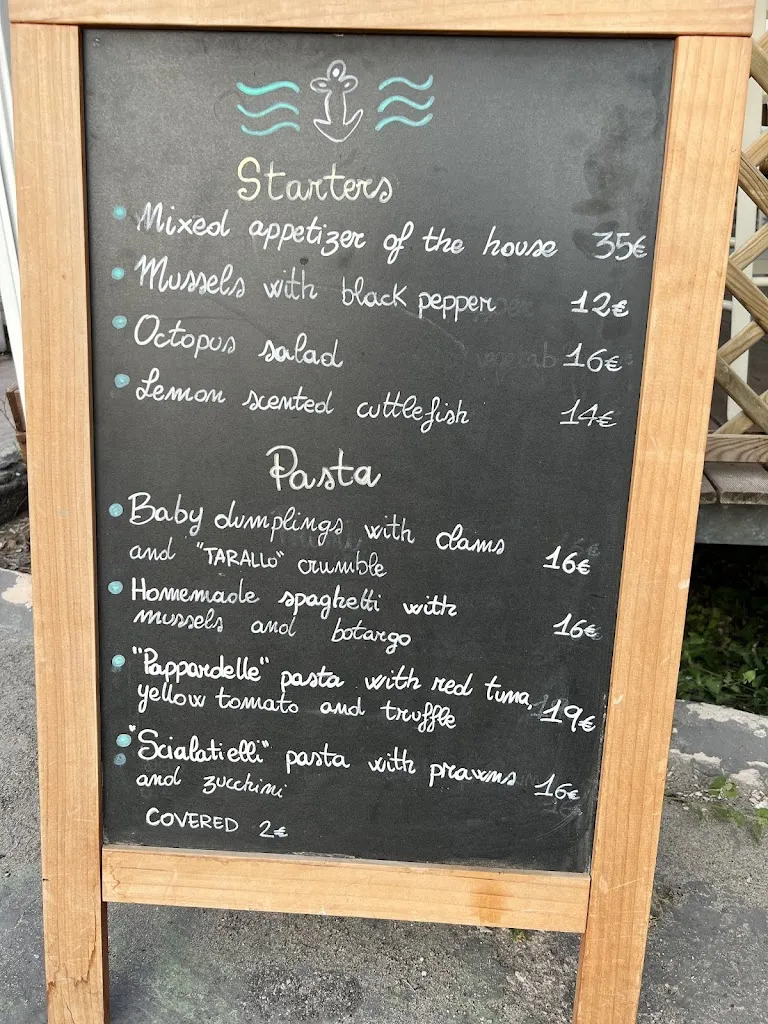 Starters
Mixed appetizer of the house 35€
Mussels with black pepper 12€
Octopus salad 16€
Lemon scented cuttlefish 14€
Pasta
Baby dumplings with clams
and "TARALLO" crumble 16€
Homemade spaghetti with
mussels and botargo 16€
"Pappardelle" pasta with red tuna,
yellow tomato and truffle 19€
"Scialatielli" pasta with prawns
and zucchini 16€
COVERED 2€